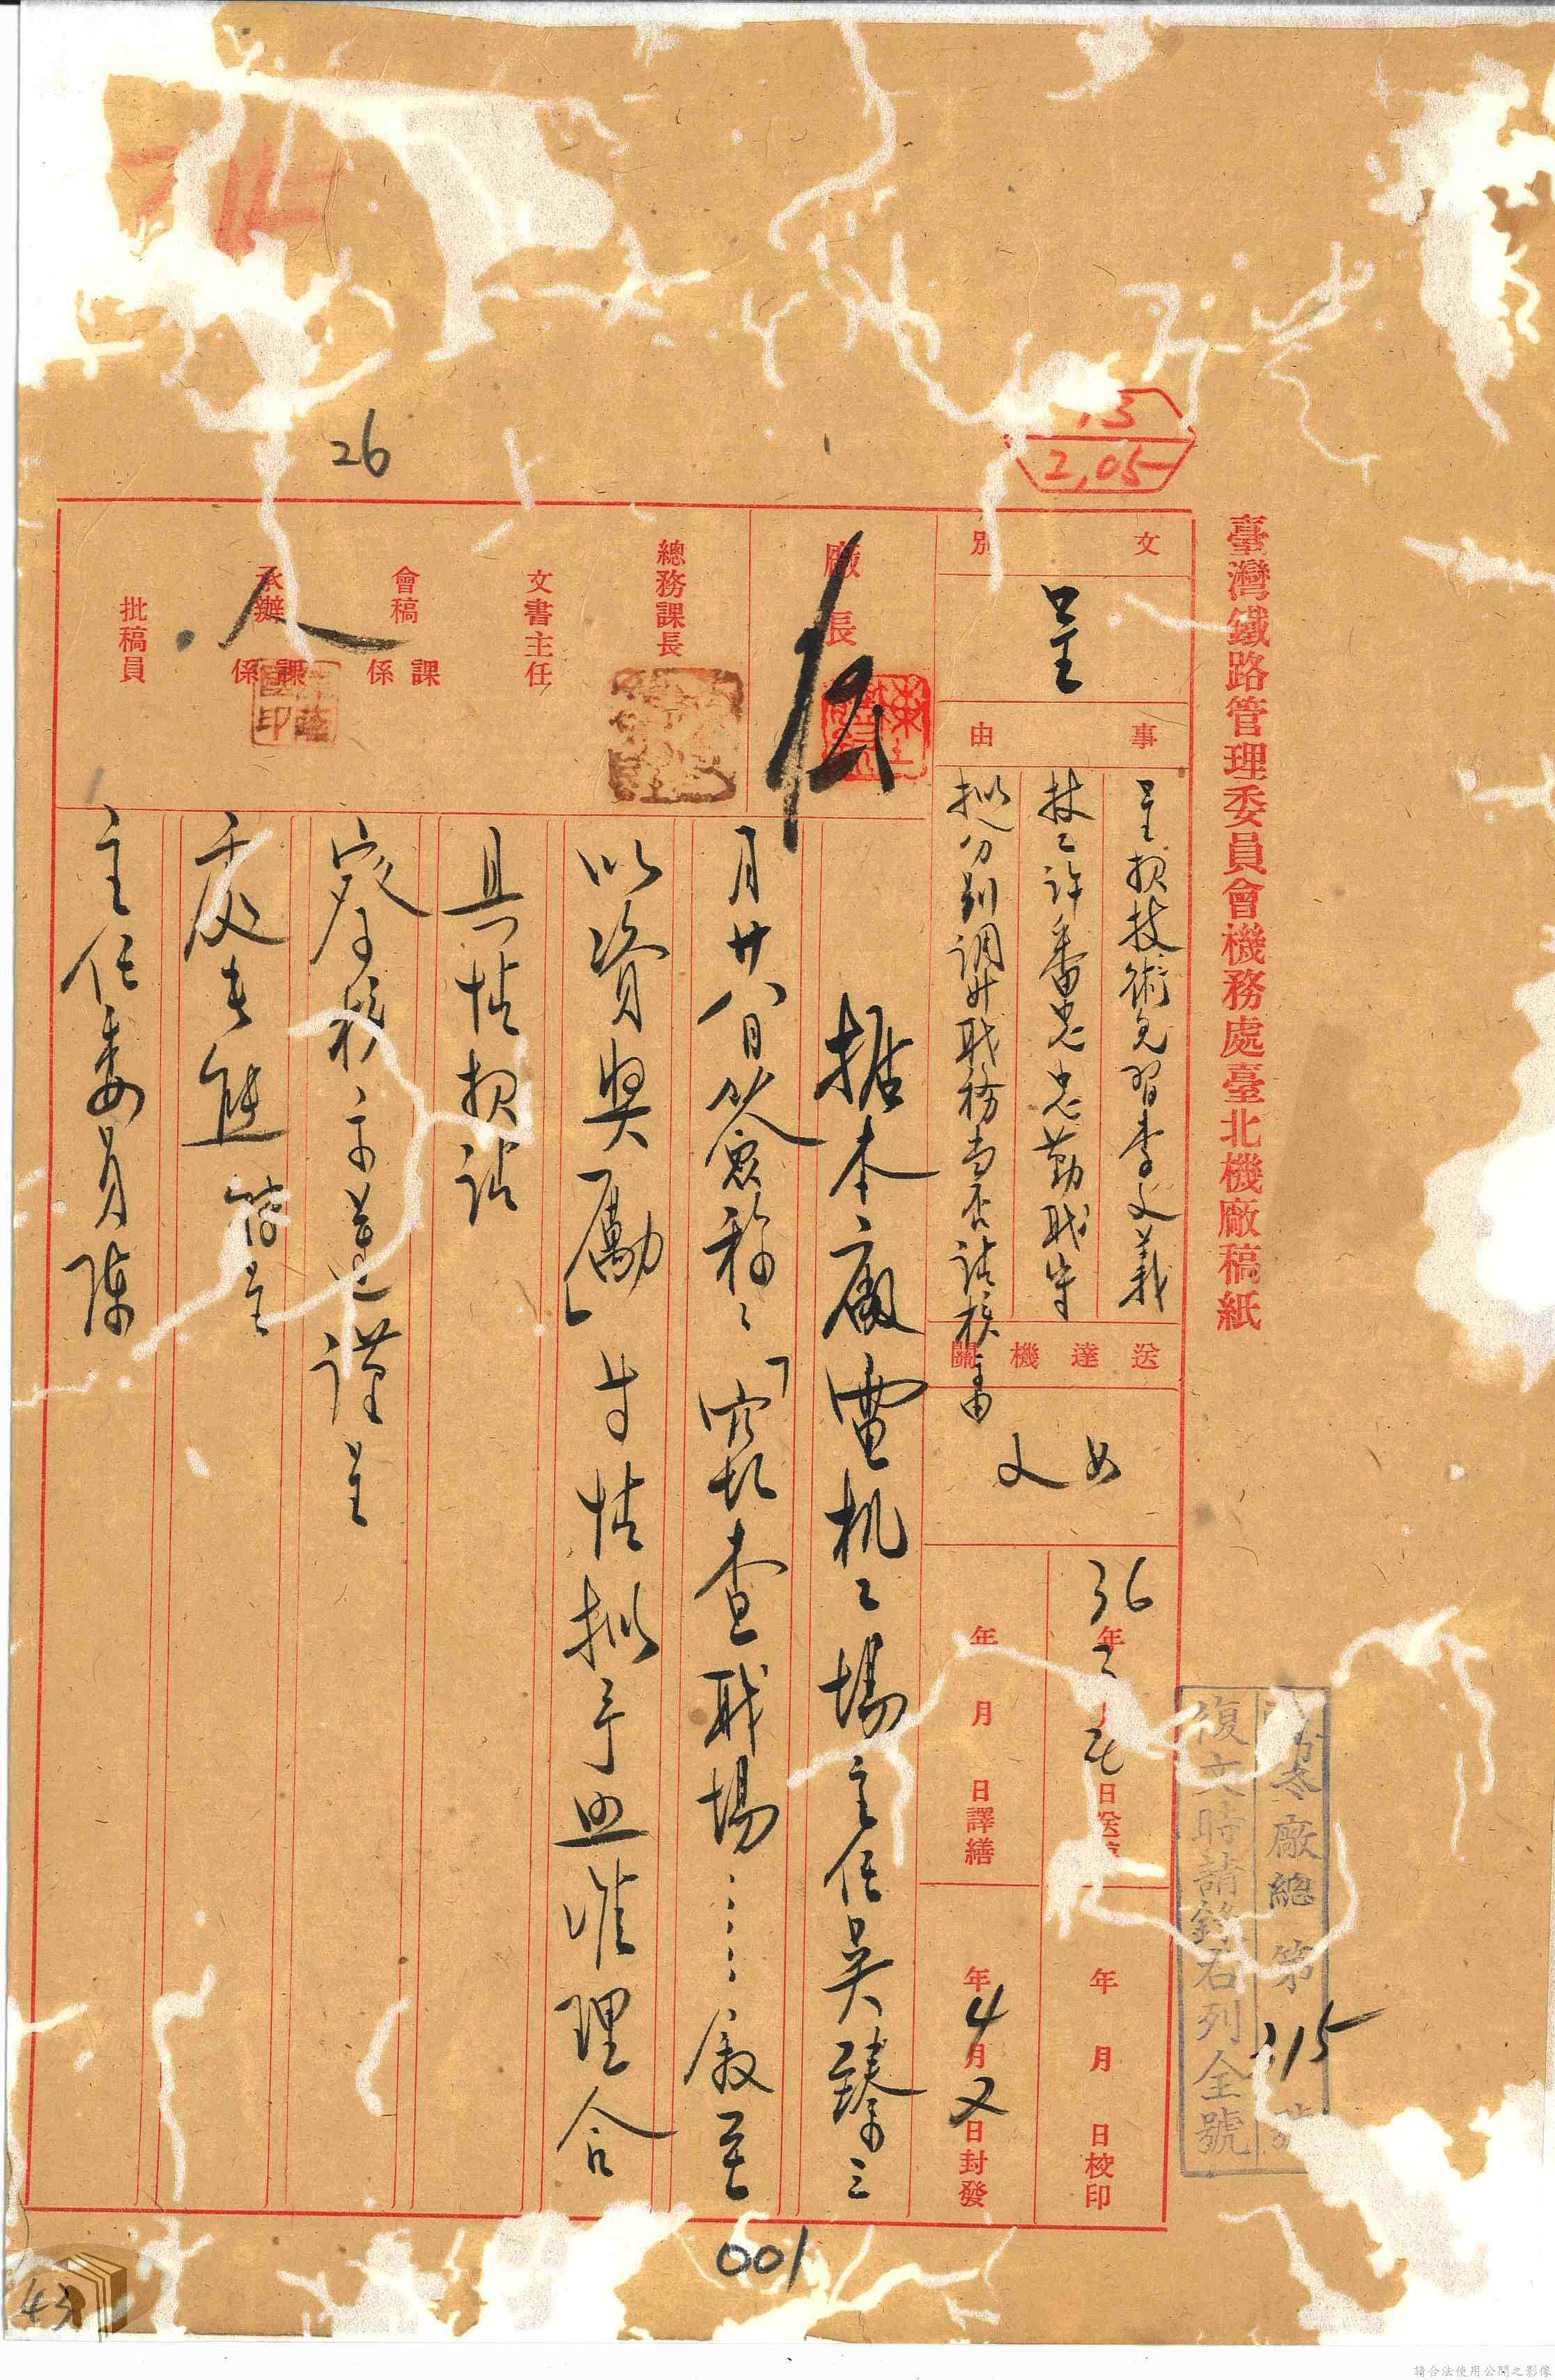 臺灣鐵路管理委員會機務處臺北機廠稿紙
13
2,05
文別
呈
事由
呈報技術見習李文義
技工許番忠忠勤職守
擬分別調升職務當否請核示由
送達機關
如文
36年 日送
年月日譯繕
年月日校印
年4月 日封發
廠總第315號
復文時請錄右列全號
廠長
總務課長
文書主任
會稿 課係
承辦 課係
批稿員
26
據本廠電机工場主任吳臻三
月廿八日簽呈稱:「竊查職場……敘至
以資獎勵」等情擬予照准理合
具情報請
察核示遵謹呈
處長
主任委員陳
001
43
請合法使用公開之影像